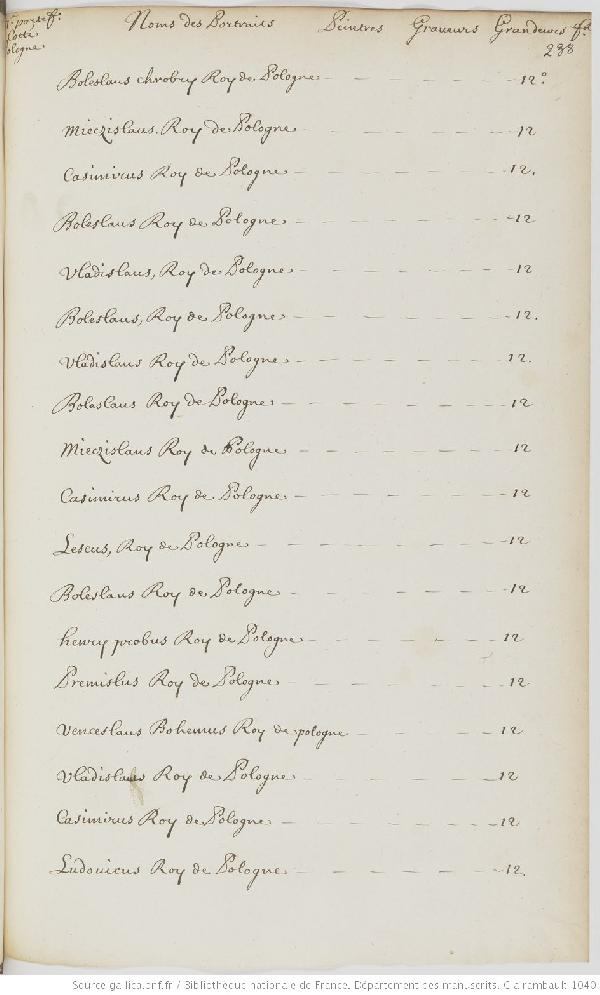 Noms des Portraits Peintres Graveurs Grandeurs
238
Boleslaus chrobry Roy de Pologne 12.°
Mieczislaus. Roy de Pologne 12
Casimirus Roy de Pologne 12.
Boleslaus Roy de Pologne 12
Vladislaus, Roy de Pologne 12
Boleslaus, Roy de Pologne 12.
Vladislaus Roy de Pologne 12.
Boleslaus Roy de Pologne 12
Mieczislaus Roy de Pologne 12
Casimirus Roy de Pologne 12
Lescus, Roy de Pologne 12
Boleslaus Roy de Pologne 12
henry probus Roy de Pologne 12
Premislus Roy de Pologne 12
Venceslaus Bohemus Roy de pologne 12
Vladislaus Roy de Pologne 12
Casimirus Roy de Pologne 12
Ludouicus Roy de Pologne 12.
Source gallica.bnf.fr / Bibliothèque nationale de France. Département des manuscrits. Clairambault 1040